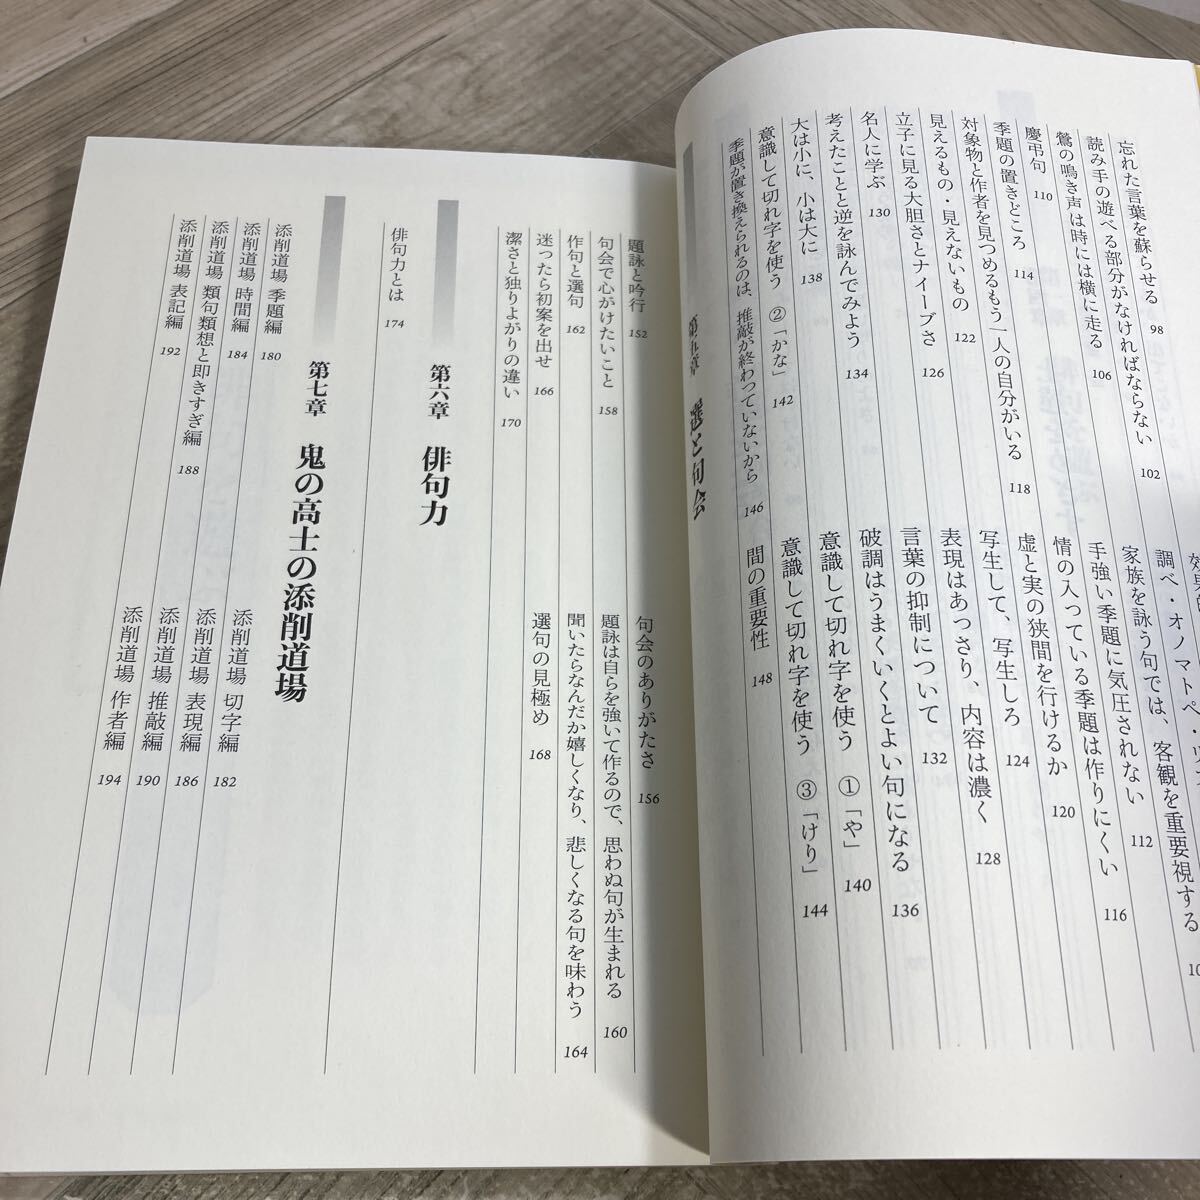 忘れた言葉を蘇らせる 98
読み手の遊べる部分がなければならない 102
調べ・オノマトペ・
鶯の鳴き声は時には横に走る 106
家族を詠う句では、客観を重要視する
慶弔句 110
手強い季題に気圧されない 112
季題の置きどころ 114
情の入っている季題は作りにくい 116
対象物と作者を見つめるもう一人の自分がいる 118
虚と実の狭間を行けるか 120
見えるもの・見えないもの 122
写生して、写生しろ 124
立子に見る大胆さとナイーブさ 126
表現はあっさり、内容は濃く 128
名人に学ぶ 130
言葉の抑制について 132
考えたことと逆を詠んでみよう 134
破調はうまくいくとよい句になる 136
大は小に、小は大に 138
意識して切れ字を使う ①「や」 140
意識して切れ字を使う ②「かな」 142
意識して切れ字を使う ③「けり」 144
季題が置き換えられるのは、推敲が終わっていないから 146
間の重要性 148
第五章 選と句会
題詠と吟行 152
句会のありがたさ 156
句会で心がけたいこと 158
題詠は自らを強いて作るので、思わぬ句が生まれる 160
作句と選句 162
聞いたらなんだか嬉しくなり、悲しくなる句を味わう 164
迷ったら初案を出せ 166
選句の見極め 168
潔さと独りよがりの違い 170
第六章 俳句力
俳句力とは 174
第七章 鬼の高士の添削道場
添削道場 季題編 180
添削道場 切字編 182
添削道場 時間編 184
添削道場 表現編 186
添削道場 類句類想と即きすぎ編 188
添削道場 推敲編 190
添削道場 表記編 192
添削道場 作者編 194